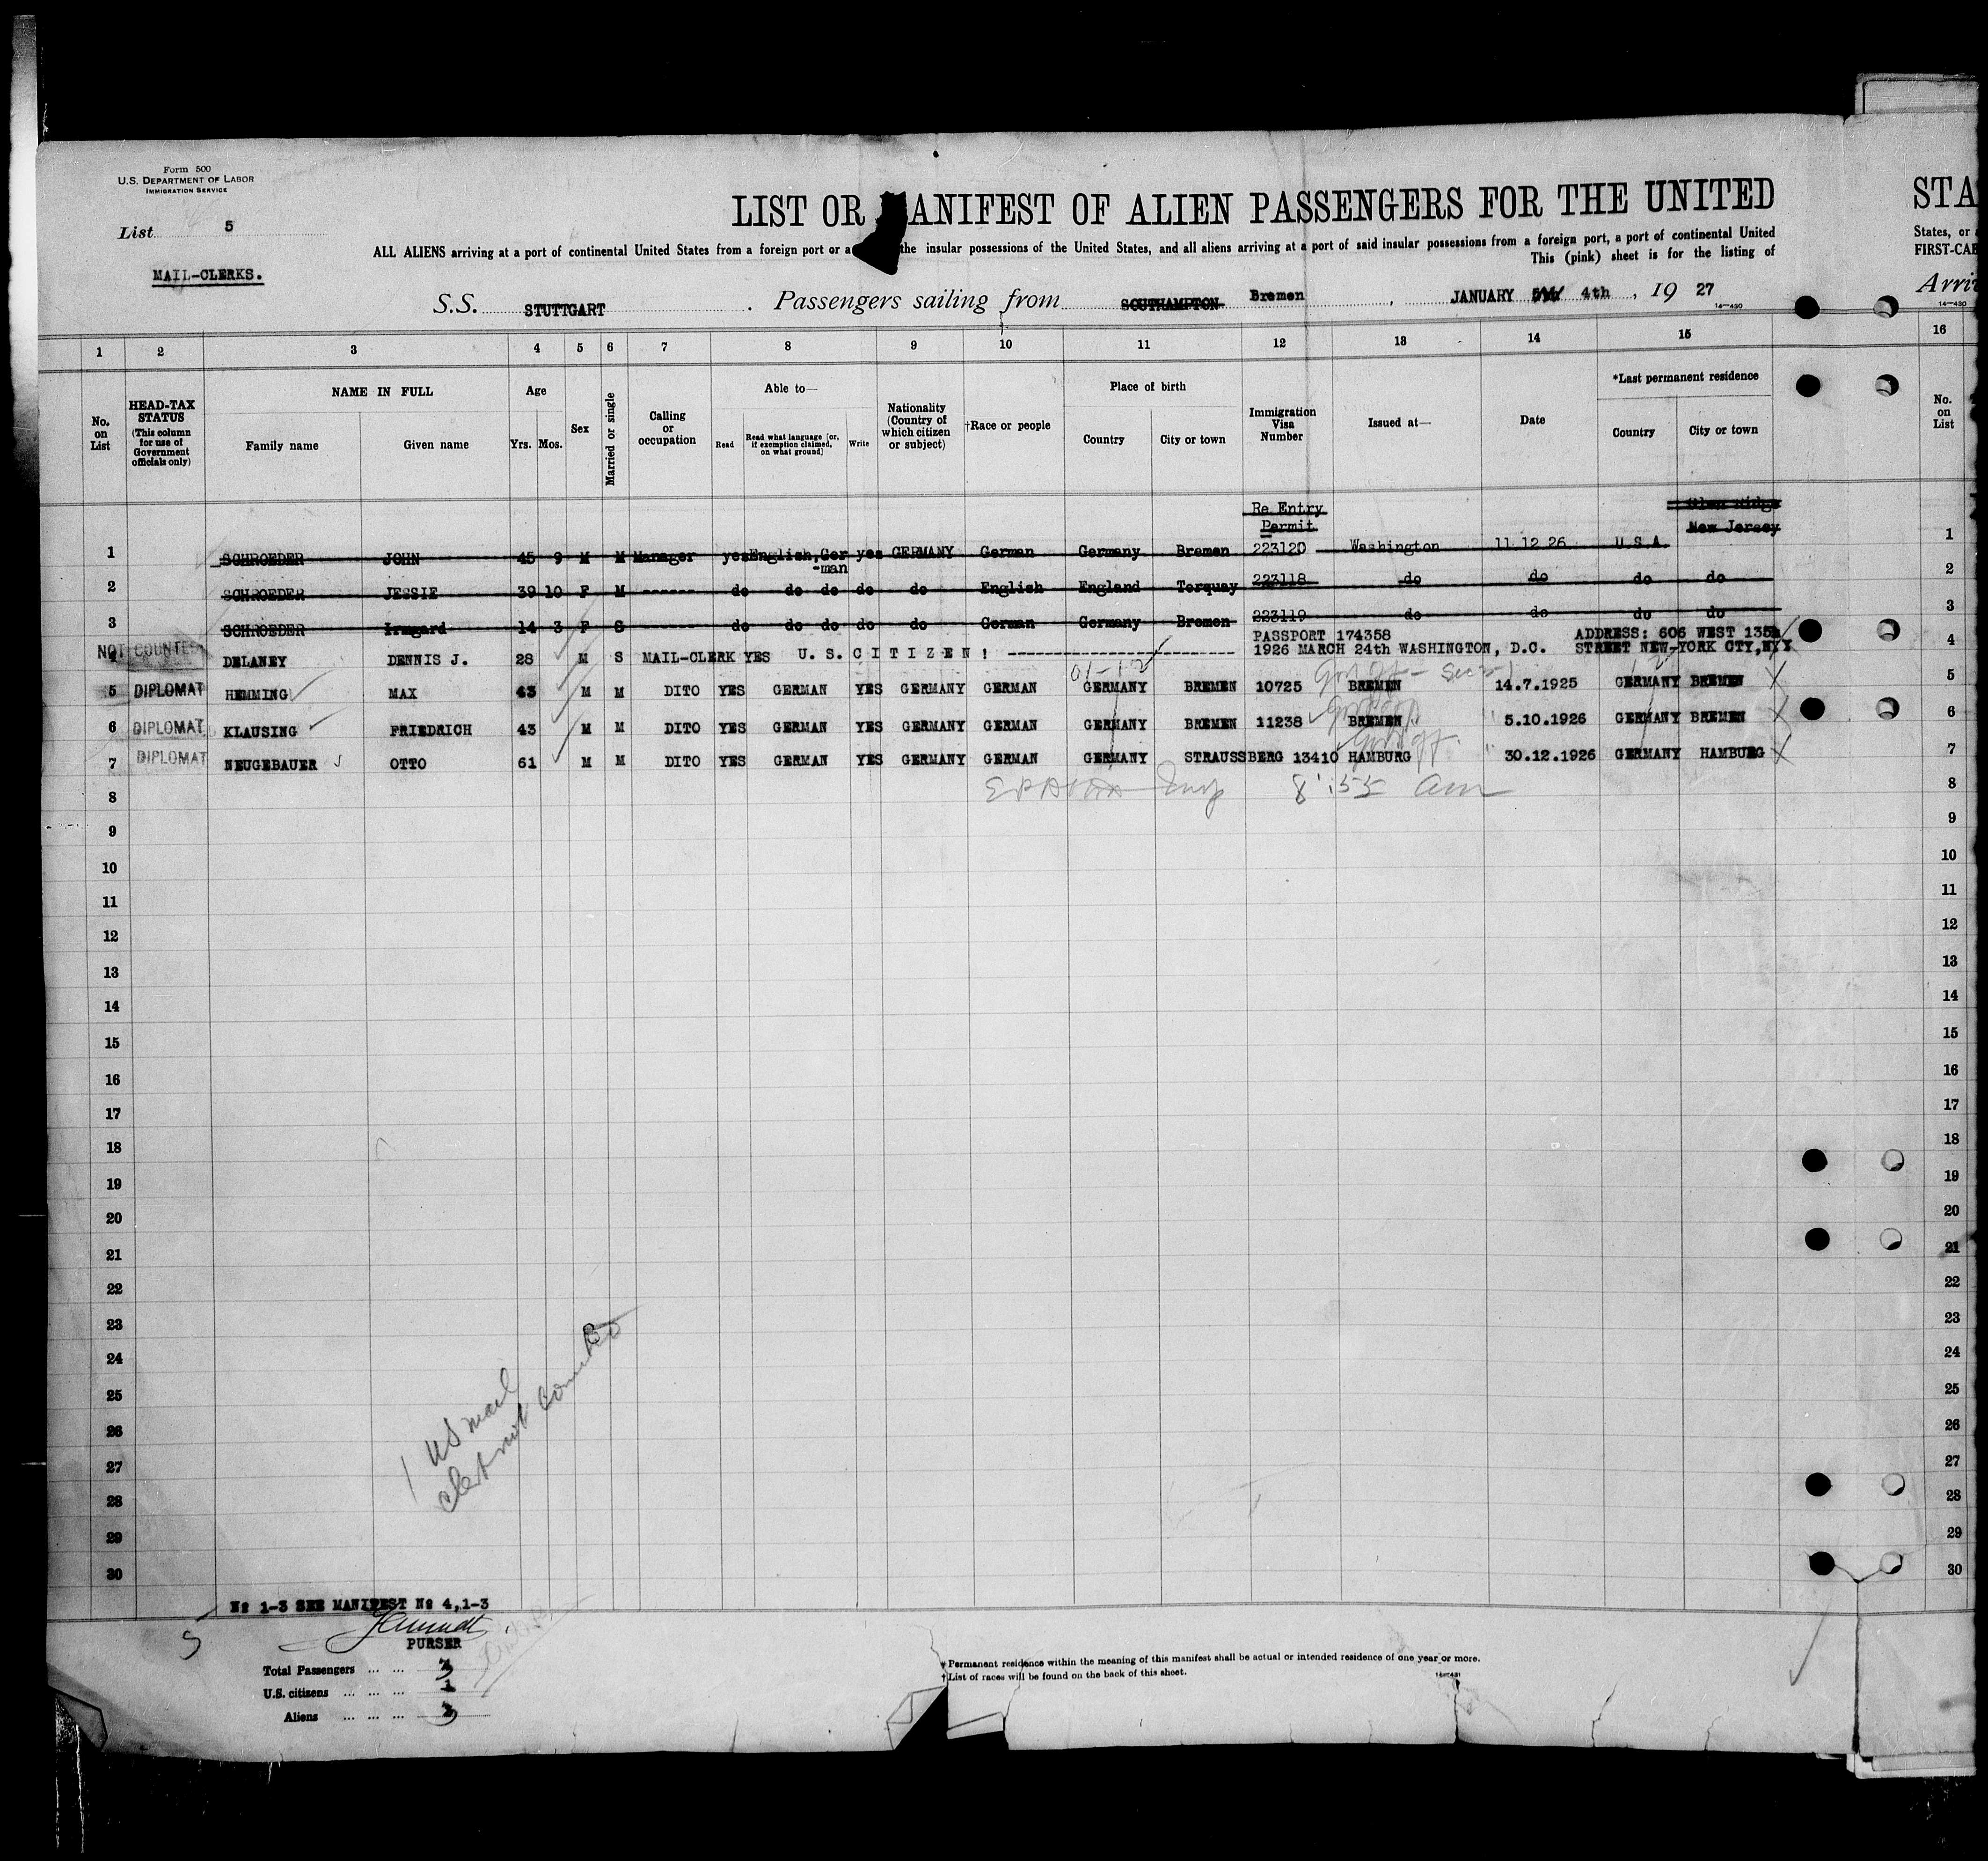 Form 500
U.S. DEPARTMENT OF LABOR
IMMIGRATION SERVICE
List 5
MAIL-CLERKS.
LIST OR MANIFEST OF ALIEN PASSENGERS FOR THE UNITED
STA
ALL ALIENS arriving at a port of continental United States from a foreign port or a the insular possessions of the United States, and all aliens arriving at a port of said insular possessions from a foreign port, a port of continental United
States, or
This (pink) sheet is for the listing of
FIRST-CAB
S.S. STUTTGART . Passengers sailing from SOUTHAMPTON Bremen , JANUARY 4th , 19 27
Arri
14—430
14—430
1 2 3 4 5 6 7 8 9 10 11 12 13 14 15 16
No. on List
HEAD-TAX STATUS
(This column for use of Government officials only)
NAME IN FULL
Family name
Given name
Age
Yrs. Mos.
Sex
Married or single
Calling or occupation
Able to—
Read
Read what language [or, if exemption claimed, on what ground]
Write
Nationality (Country of which citizen or subject)
†Race or people
Place of birth
Country
City or town
Immigration Visa Number
Issued at—
Date
*Last permanent residence
Country
City or town
No. on List
Re Entry Glen Ridge
Permit New Jersey
1 SCHROEDER JOHN 45 9 M M Manager yes English, Ger-man yes GERMANY German Germany Bremen 223120 Washington 11.12.26 U.S.A. 1
2 SCHROEDER JESSIE 39 10 F M ------ do do do do do English England Torquay 223118 do do do do 2
3 SCHROEDER Irmgard 14 3 F S ------ do do do do do German Germany Bremen 223119 do do do do 3
PASSPORT 174358 ADDRESS: 606 WEST 135
NOT COUNTED
4 DELANEY DENNIS J. 28 M S MAIL-CLERK YES U. S. C I T I Z E N ! ------------------------- 1926 MARCH 24th WASHINGTON, D.C. STREET NEW-YORK CTY, 4
5 DIPLOMAT HEMMING MAX 43 M M DITO YES GERMAN YES GERMANY GERMAN GERMANY BREMEN 10725 BREMEN 14.7.1925 GERMANY BREMEN 5
6 DIPLOMAT KLAUSING FRIEDRICH 43 M M DITO YES GERMAN YES GERMANY GERMAN GERMANY BREMEN 11238 BREMEN 5.10.1926 GERMANY BREMEN 6
7 DIPLOMAT NEUGEBAUER OTTO 61 M M DITO YES GERMAN YES GERMANY GERMAN GERMANY STRAUSSBERG 13410 HAMBURG 30.12.1926 GERMANY HAMBURG 7
8 8:55 am 8
9 9
10 10
11 11
12 12
13 13
14 14
15 15
16 16
17 17
18 18
19 19
20 20
21 21
22 22
23 23
24 24
25 25
26 26
27 27
28 28
29 29
30 30
1 US mail
clerk not counted
№ 1-3 SEE MANIFEST № 4,1-3
PURSER
5
Total Passengers ... ... 3
U.S. citizens ... ... ... 1
Aliens ... ... ... 3
*Permanent residence within the meaning of this manifest shall be actual or intended residence of one year or more.
†List of races will be found on the back of this sheet.